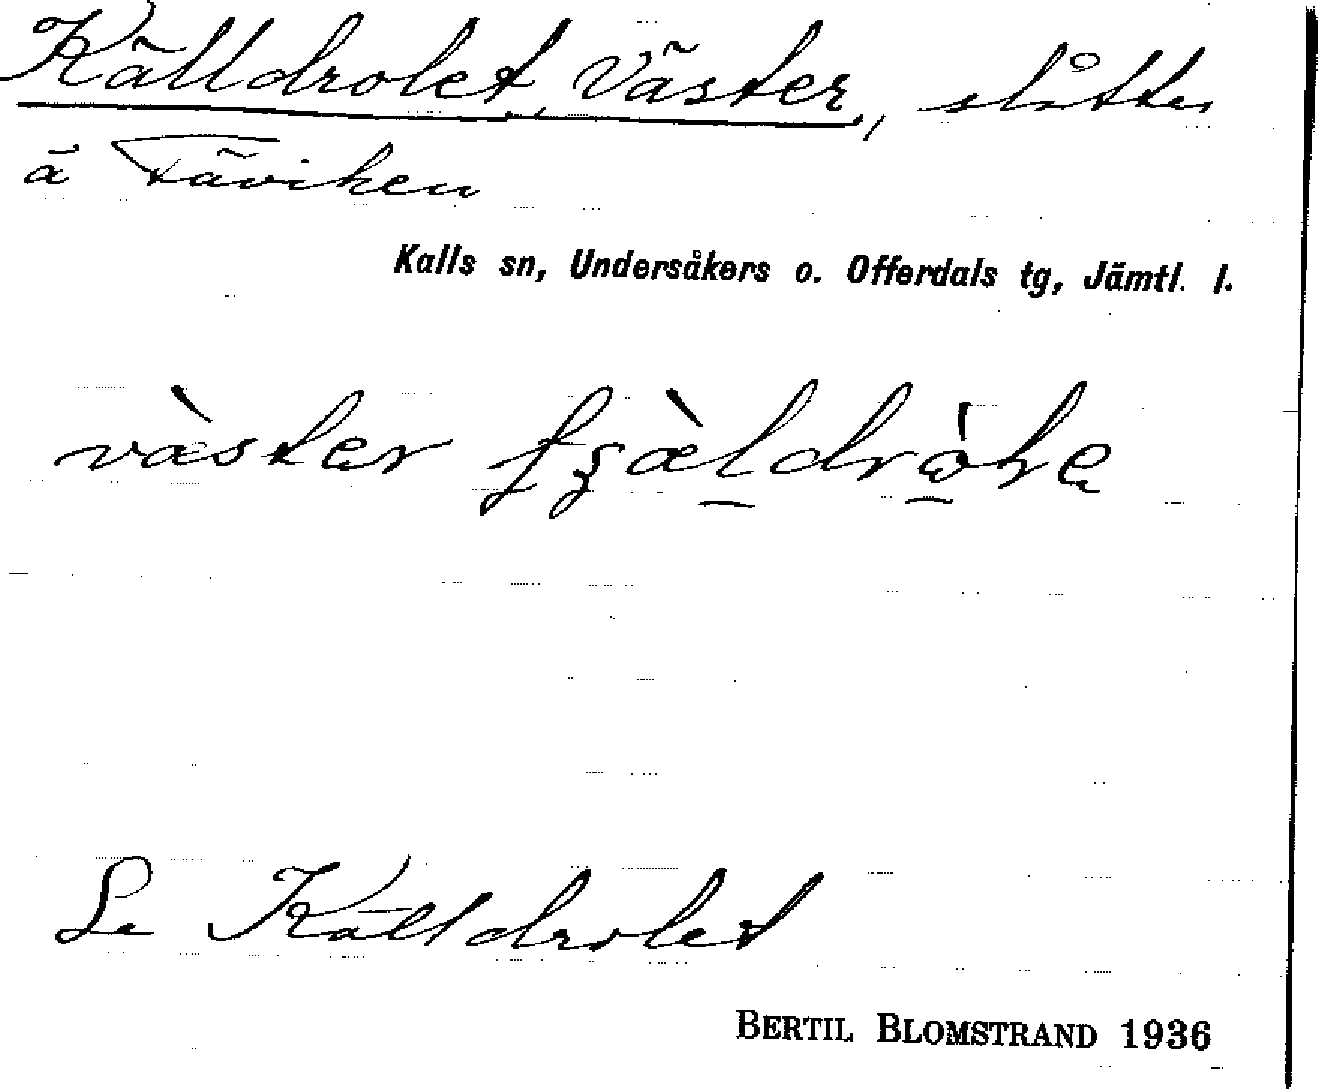 Källdrolet, Väster, slåtter
å Fäviken
Kalls sn, Undersåkers o. Offerdals tg, Jämtl. l.
vàster
Se Källdrolet
BERTIL BLOMSTRAND 1936